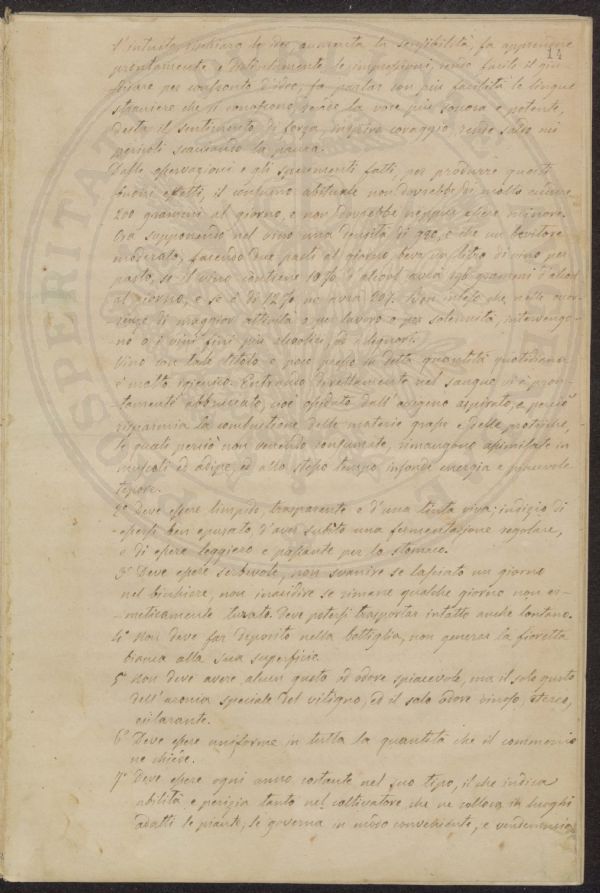 14
rischiara le idee, aumenta la sensibilità, fa apprendere
prontamente e distintamente le impressioni, rende facile il giu
dicare per confronto d'idee, fa parlar con più facilità le lingue
straniere che si conoscono, rende la voce più sonora e potente,
desta il sentimento di forza, coraggio, rende saldo nei
pericoli scacciando la paura.
Dalle osservazioni e gli sperimenti fatti, per produrre questi
buoni effetti, il consumo abituale non dovrebbe di molto
200 grammi al giorno, e non dovrebbe neppure essere minore.
Ora supponendo nel vino una densità di 980, e che un bevitore
moderato, facendo due pasti al giorno, beva un litro di vino per
pasto, se il vino contiene 10% d'alcool avrà 196 grammi d'alcool
al giorno, e se è di 12% ne avrà Ben inteso che nelle occor
-renze di maggior attività o per lavoro o per solennità, intervengo-
-no o i vini fini più alcoolici, od i liquori.
Vino con tale titolo e peso preso in detta quantità quotidiana
è molto igienico. Entrando direttamente nel sangue vi è pron-
-tamente abbruciato, cioè ossidato dall'ossigeno aspirato, e perciò
risparmia la combustione delle materie grasse e delle proteiche,
le quali perciò non venendo consumate, rimangono assimilate in
muscoli ed adipe, ed allo stesso tempo infonde energia e piacevole
tepore.
2° Deve essere limpido trasparente e d'una tinta viva; indizio di
essersi ben epurato, d'aver subìto una fermentazione regolare,
e di essere leggiero e passante per lo stomaco.
3° Deve essere serbevole, non svanire se lasciato un giorno
nel bicchiere, non inacidire se rimane qualche giorno non er-
-meticamente turato. Deve potersi trasportar intatto anche lontano.
4° Non deve far deposito nella bottiglia, non generar la fioretta
bianca alla sua superficie.
5° Non deve avere alcun gusto od odore spiacevole, ma il solo gusto
dell'aroma speciale del vitigno, ed il solo odore vinoso, etereo,
esilarante.
6° Deve essere uniforme in tutta la quantità che il commercio
ne chiede.
7° Deve essere ogni anno costante nel suo tipo, il che indica
abilità, e perizia tanto nel coltivatore, che ne colloca in luoghi
adatti le piante, le governa in modo conveniente, e
PROSPERITATI